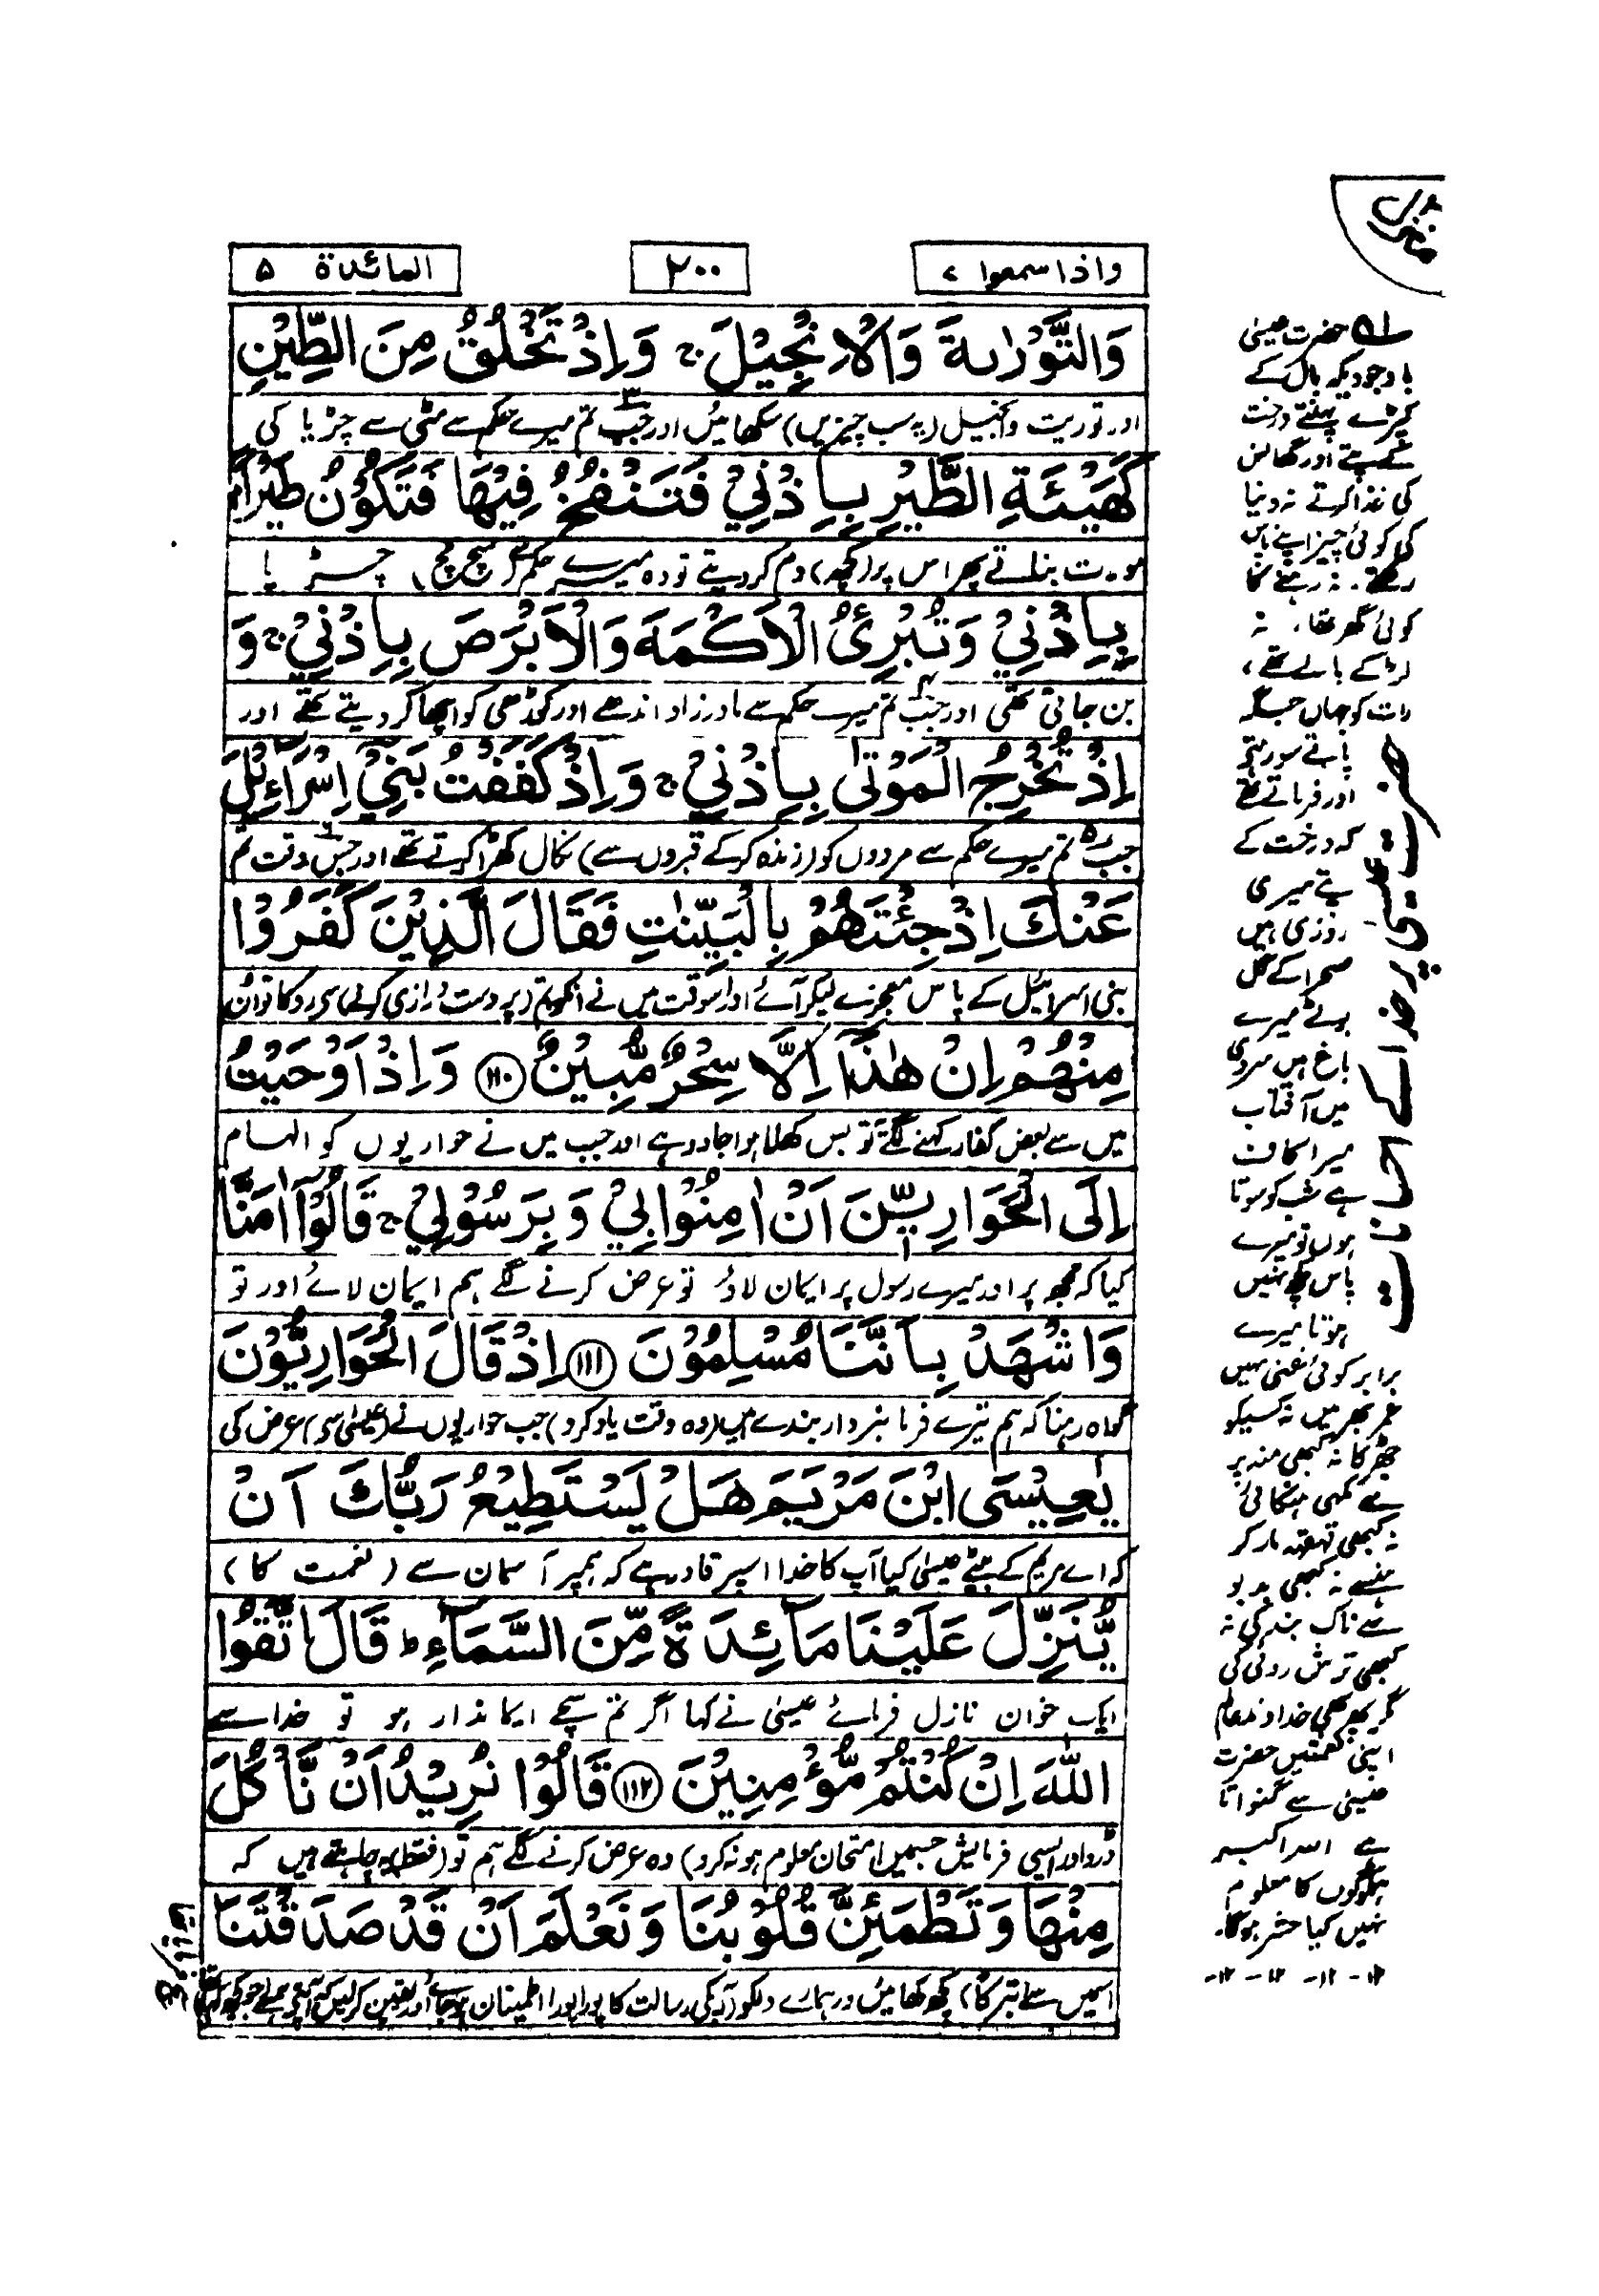 منزل
واذا سمعوا ۷
۲۰۰
المائدة ۵
وَالتَّوْرٰىةَ وَالْاِنْجِيْلَ ۚ وَاِذْ تَخْلُقُ مِنَ الطِّيْنِ
اور توریت و انجیل (یہ سب چیزیں) سکھائیں اور جب تم میرے حکم سے مٹی سے چڑیا کی
كَهَيْـَٔةِ الطَّيْرِ بِاِذْنِيْ فَتَنْفُخُ فِيْهَا فَتَكُوْنُ طَيْرًۢا
مورت بناتے پھر اس پر (کچھ) دم کر دیتے تو وہ میرے حکم سے (سچ مچ) چڑیا
بِاِذْنِيْ وَتُبْرِئُ الْاَكْمَهَ وَالْاَبْرَصَ بِاِذْنِيْ ۚ وَ
بن جاتی تھی اور جب تم میرے حکم سے مادرزاد اندھے اور کوڑھی کو اچھا کر دیتے تھے اور
اِذْ تُخْرِجُ الْمَوْتٰى بِاِذْنِيْ ۚ وَاِذْ كَفَفْتُ بَنِيْ اِسْرَآءِيْلَ
جب تم میرے حکم سے مردوں کو (زندہ کر کے قبروں سے) نکال کھڑا کرتے تھے اور جس وقت تم
عَنْكَ اِذْ جِئْتَهُمْ بِالْبَيِّنٰتِ فَقَالَ الَّذِيْنَ كَفَرُوْا
بنی اسرائیل کے پاس معجزے لیکر آئے اور اسوقت میں نے انکو تم (پر دست درازی کرنے) سے روکا تو ان
مِنْهُمْ اِنْ هٰذَآ اِلَّا سِحْرٌ مُّبِيْنٌ ﴿۱۱۰﴾ وَاِذْ اَوْحَيْتُ
میں سے بعض کفار کہنے لگے تو بس کھلا ہوا جادو ہے اور جب میں نے حواریوں کو الہام
اِلَى الْحَوَارِيّٖنَ اَنْ اٰمِنُوْا بِيْ وَبِرَسُوْلِيْ ۚ قَالُوْٓا اٰمَنَّا
کیا کہ مجھ پر اور میرے رسول پر ایمان لاؤ تو عرض کرنے لگے ہم ایمان لائے اور تو
وَاشْهَدْ بِاَنَّنَا مُسْلِمُوْنَ ﴿۱۱۱﴾ اِذْ قَالَ الْحَوَارِيُّوْنَ
گواہ رہنا کہ ہم تیرے فرمانبردار بندے ہیں (وہ وقت یاد کرو) جب حواریوں نے (عیسیٰ سے) عرض کی
يٰعِيْسَى ابْنَ مَرْيَمَ هَلْ يَسْتَطِيْعُ رَبُّكَ اَنْ
کہ اے مریم کے بیٹے عیسیٰ کیا آپ کا خدا اسپر قادر ہے کہ ہمپر آسمان سے (نعمت کا)
يُّنَزِّلَ عَلَيْنَا مَآئِدَةً مِّنَ السَّمَآءِ ؕ قَالَ اتَّقُوا
ایک خوان نازل فرمائے عیسیٰ نے کہا اگر تم سچے ایماندار ہو تو خدا سے
اللّٰهَ اِنْ كُنْتُمْ مُّؤْمِنِيْنَ ﴿۱۱۲﴾ قَالُوْا نُرِيْدُ اَنْ نَّاْكُلَ
ڈرو اور ایسی فرمایش جسمیں امتحان معلوم ہو نہ کرو) وہ عرض کرنے لگے ہم تو (فقط) یہ چاہتے ہیں کہ
مِنْهَا وَتَطْمَئِنَّ قُلُوْبُنَا وَنَعْلَمَ اَنْ قَدْ صَدَقْتَنَا
اسمیں سے تبرکاً) کچھ کھائیں اور ہمارے دلکو (آپکی رسالت کا پورا پورا اطمینان ہو جائے اور یقین کر لیں کہ آپنے ہم سے جو کچھ کہا
حضرت عیسیٰ پر خدا کے احسانات
۵۱ حضرت عیسیٰ
باوجودیکہ بال کے
کپڑے پہنتے درخت
کے پتے اور گھاس
کی غذا کرتے نہ دنیا
کی کوئی چیز اپنے پاس
رکھتے۔ نہ رہنے کا
کوئی گھر تھا، نہ
لڑکے بالے تھے،
رات کو جہاں جگہ
پاتے سو رہتے
اور فرماتے تھے
کہ درخت کے
پتے میری
روزی ہیں
صحرا کے گل
بوٹے میرے
باغ ہیں سردی
میں آفتاب
میرا مکان
ہے شب کو سوتا
ہوں تو میرے
پاس کچھ نہیں
ہوتا میرے
برابر کوئی غنی نہیں
عمر بھر میں نہ کسیکو
جھڑکا نہ کبھی منہ پر
سے مکھی ہنکائی
نہ کبھی قہقہہ مار کر
ہنسے نہ کبھی بدبو
سے ناک بند کی نہ
کبھی ترش روئی کی
مگر پھر بھی خداوند عالم
اپنی نعمتیں حضرت
عیسیٰ سے گنواتا
ہے اللہ اکبر
ہملوگوں کا معلوم
نہیں کیا حشر ہوگا۔
۱۲-۱۲-۱۲-۱۲-